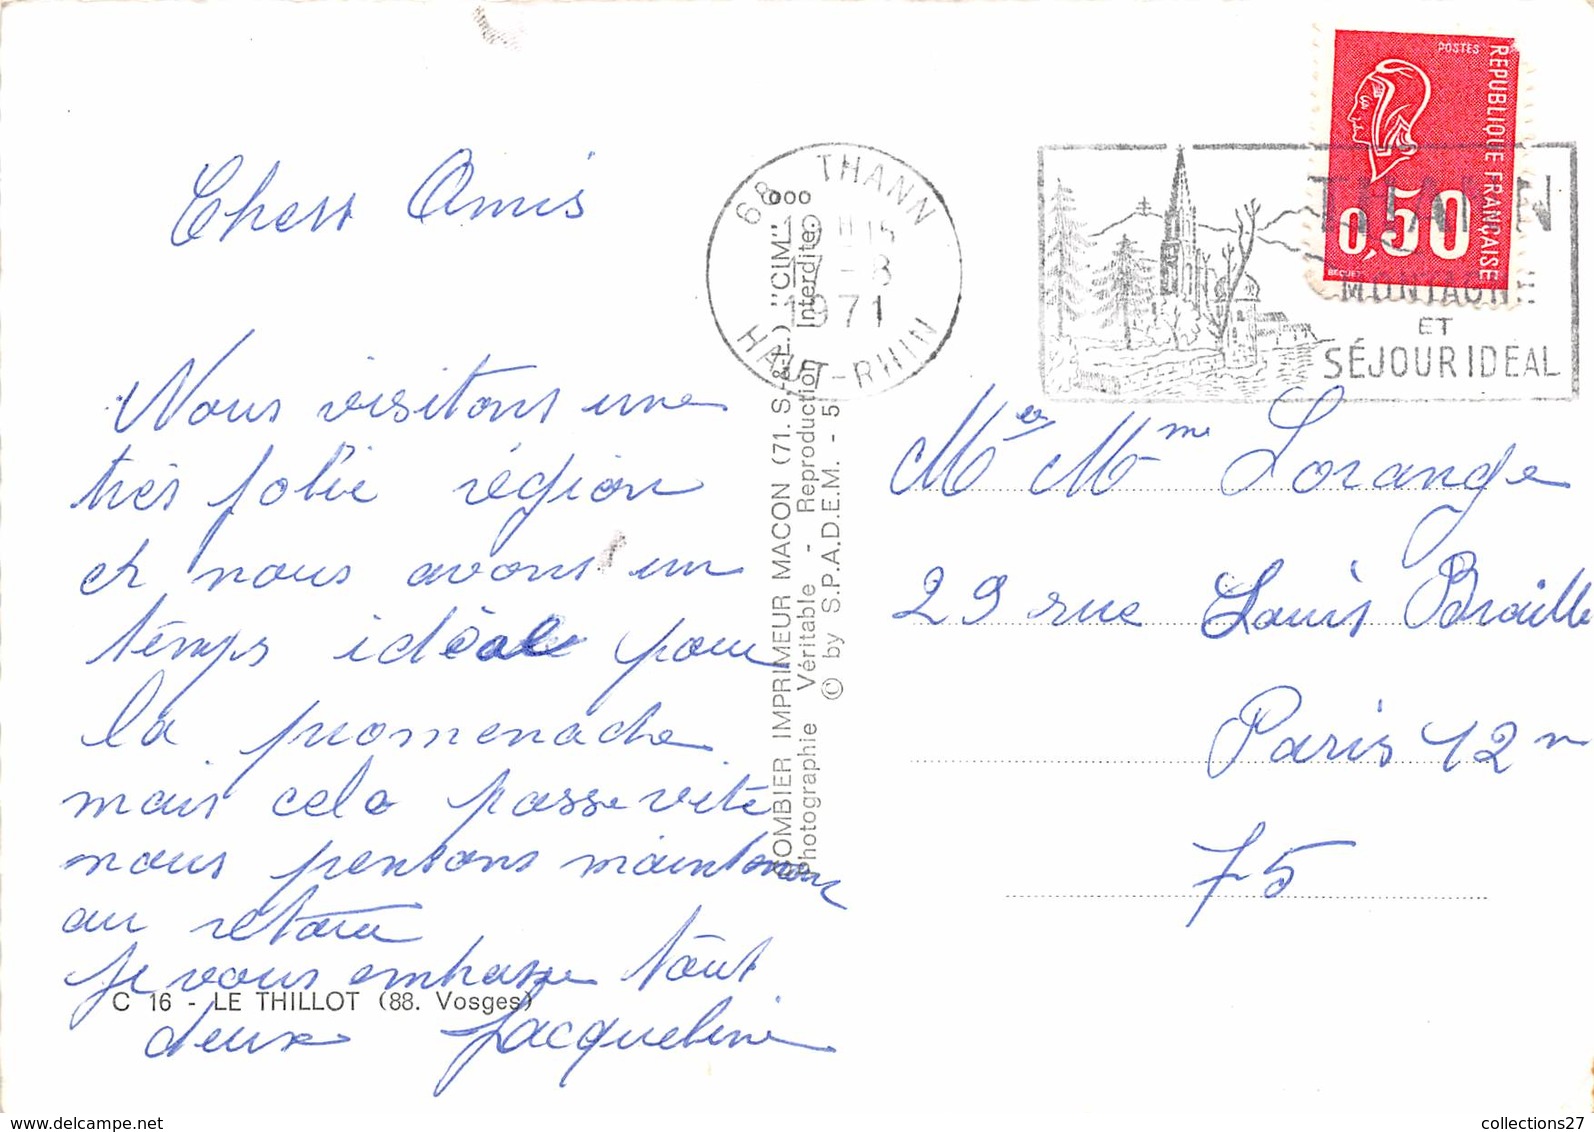 Chers Amis
Nous visitons une
très jolie région
et nous avons un
temps idéale pour
la promenade
mais cela passe vite
nous pensons maintenant
au retour
je vous embrasse tout
deux Jacqueline
C 16 - LE THILLOT (88. Vosges)
COMBIER IMPRIMEUR MACON (71. S.-&-L.) "CIM"
Photographie Véritable - Reproduction Interdite.
© by S.P.A.D.E.M. - 5
68 THANN
19 H 15
17 - 8
1971
HAUT-RHIN
POSTES
REPUBLIQUE FRANÇAISE
0,50
BEQUET
THANN
MONTAGNE
ET
SÉJOUR IDEAL
Mr et Mme Lorange
29 rue Louis Braille
Paris 12e
75
collections27